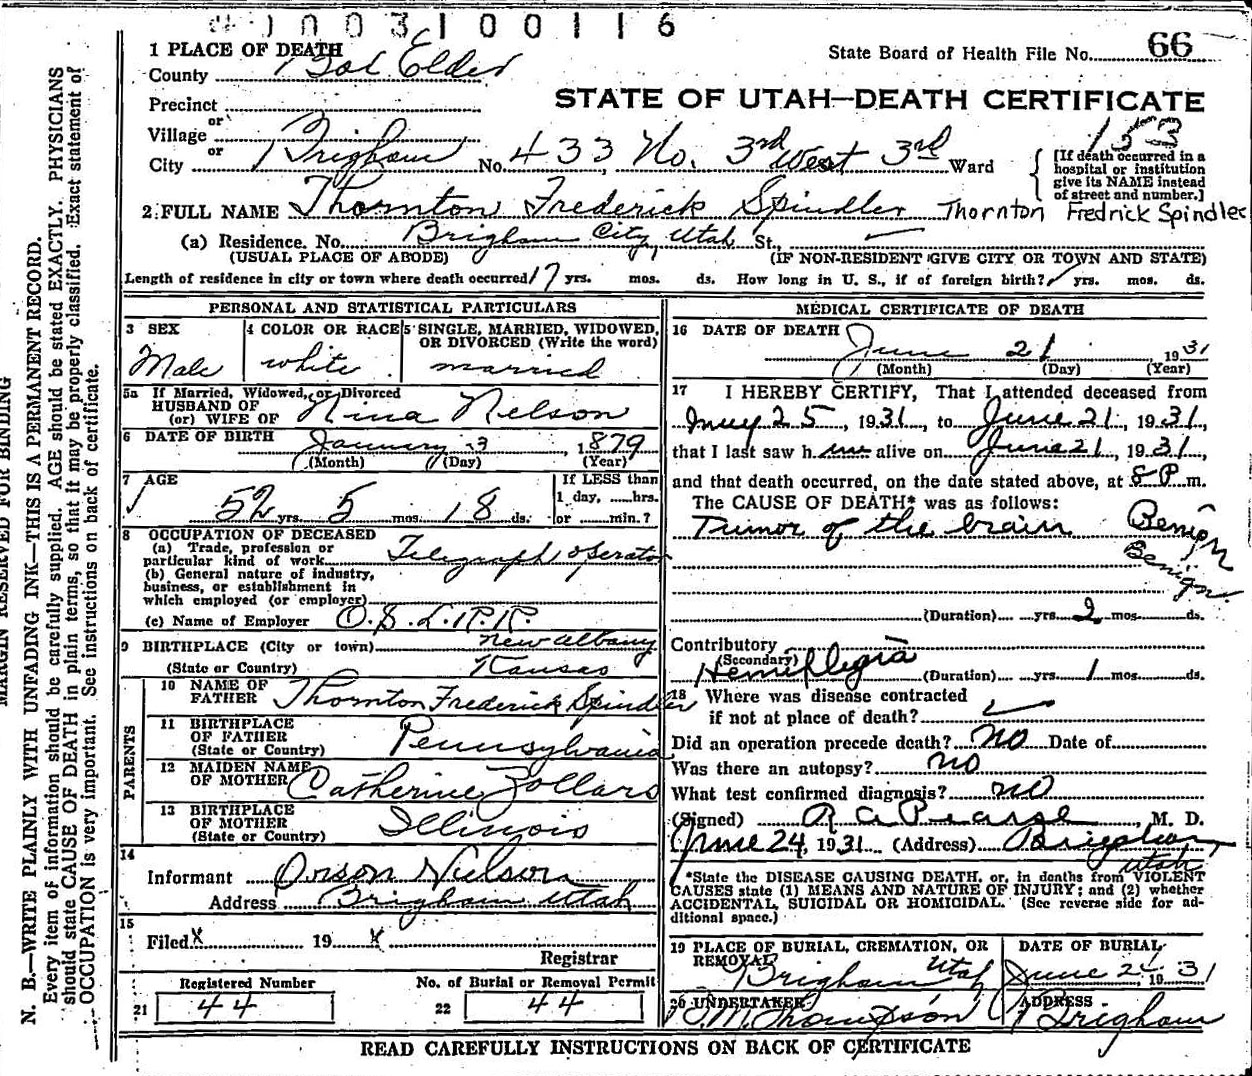 1003100116
1 PLACE OF DEATH
County Box Elder
State Board of Health File No. 66
STATE OF UTAH—DEATH CERTIFICATE
Precinct
or
Village
or
City Brigham No. 433 No. 3rd West 3rd Ward
153
[If death occurred in a
hospital or institution
give its NAME instead
of street and number.]
2 FULL NAME Thornton Frederick Spindler Thornton Fredrick Spindler
(a) Residence. No. Brigham City, Utah St.,
(USUAL PLACE OF ABODE) (IF NON-RESIDENT GIVE CITY OR TOWN AND STATE)
Length of residence in city or town where death occurred 17 yrs. mos. ds. How long in U. S., if of foreign birth? yrs. mos. ds.
PERSONAL AND STATISTICAL PARTICULARS
3 SEX
Male
4 COLOR OR RACE
white
5 SINGLE, MARRIED, WIDOWED,
OR DIVORCED (Write the word)
married
5a If Married, Widowed, or Divorced
HUSBAND OF
(or) WIFE OF Nina Nelson
6 DATE OF BIRTH January 3, 1879
(Month) (Day) (Year)
7 AGE
52 yrs. 5 mos. 18 ds.
If LESS than
1 day, ......hrs.
or ......min.?
8 OCCUPATION OF DECEASED
(a) Trade, profession or
particular kind of work Telegraph operator
(b) General nature of industry,
business, or establishment in
which employed (or employer)
(c) Name of Employer O. S. L. R. R.
9 BIRTHPLACE (City or town) New Albany
(State or Country) Kansas
PARENTS
10 NAME OF
FATHER Thornton Frederick Spindler
11 BIRTHPLACE
OF FATHER
(State or Country) Pennsylvania
12 MAIDEN NAME
OF MOTHER Catherine Zollars
13 BIRTHPLACE
OF MOTHER
(State or Country) Illinois
14
Informant Orson Nielson
Address Brigham Utah
15
Filed x 19 x
Registrar
Registered Number
21 44
No. of Burial or Removal Permit
22 44
MEDICAL CERTIFICATE OF DEATH
16 DATE OF DEATH
June 21, 1931
(Month) (Day) (Year)
17 I HEREBY CERTIFY, That I attended deceased from
May 25, 1931, to June 21, 1931,
that I last saw him alive on June 21, 1931,
and that death occurred, on the date stated above, at 8 P m.
The CAUSE OF DEATH* was as follows:
Tumor of the brain Benign
Benign
(Duration) yrs. 2 mos. ds.
Contributory
(Secondary)
Hemiplegia (Duration) yrs. 1 mos. ds.
18 Where was disease contracted
if not at place of death?
Did an operation precede death? no Date of
Was there an autopsy? no
What test confirmed diagnosis? no
(Signed) R A Pearse, M. D.
June 24, 1931 (Address) Brigham
Utah
*State the DISEASE CAUSING DEATH, or, in deaths from VIOLENT
CAUSES state (1) MEANS AND NATURE OF INJURY; and (2) whether
ACCIDENTAL, SUICIDAL OR HOMICIDAL. (See reverse side for ad-
ditional space.)
19 PLACE OF BURIAL, CREMATION, OR
REMOVAL
Brigham Utah
DATE OF BURIAL
June 24, 1931
20 UNDERTAKER
Thompson
ADDRESS
Brigham
READ CAREFULLY INSTRUCTIONS ON BACK OF CERTIFICATE
MARGIN RESERVED FOR BINDING
N. B.—WRITE PLAINLY WITH UNFADING INK—THIS IS A PERMANENT RECORD.
Every item of information should be carefully supplied. AGE should be stated EXACTLY. PHYSICIANS
should state CAUSE OF DEATH in plain terms, so that it may be properly classified. Exact statement of
OCCUPATION is very important. See instructions on back of certificate.